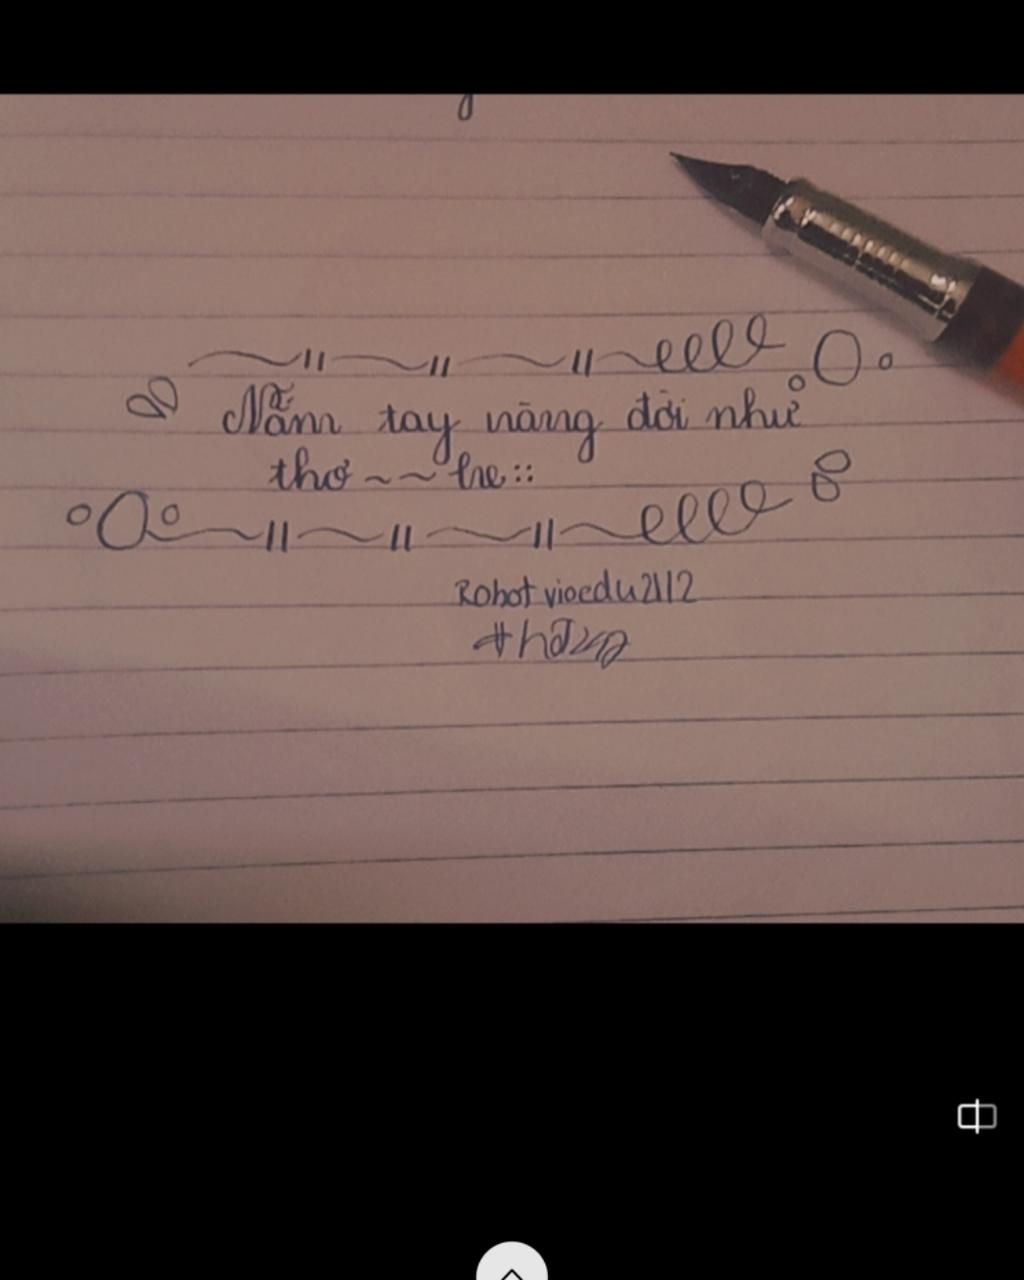 Nắm tay nâng đời như
thơ ~ ~ tre ::
Robot vioedu2112